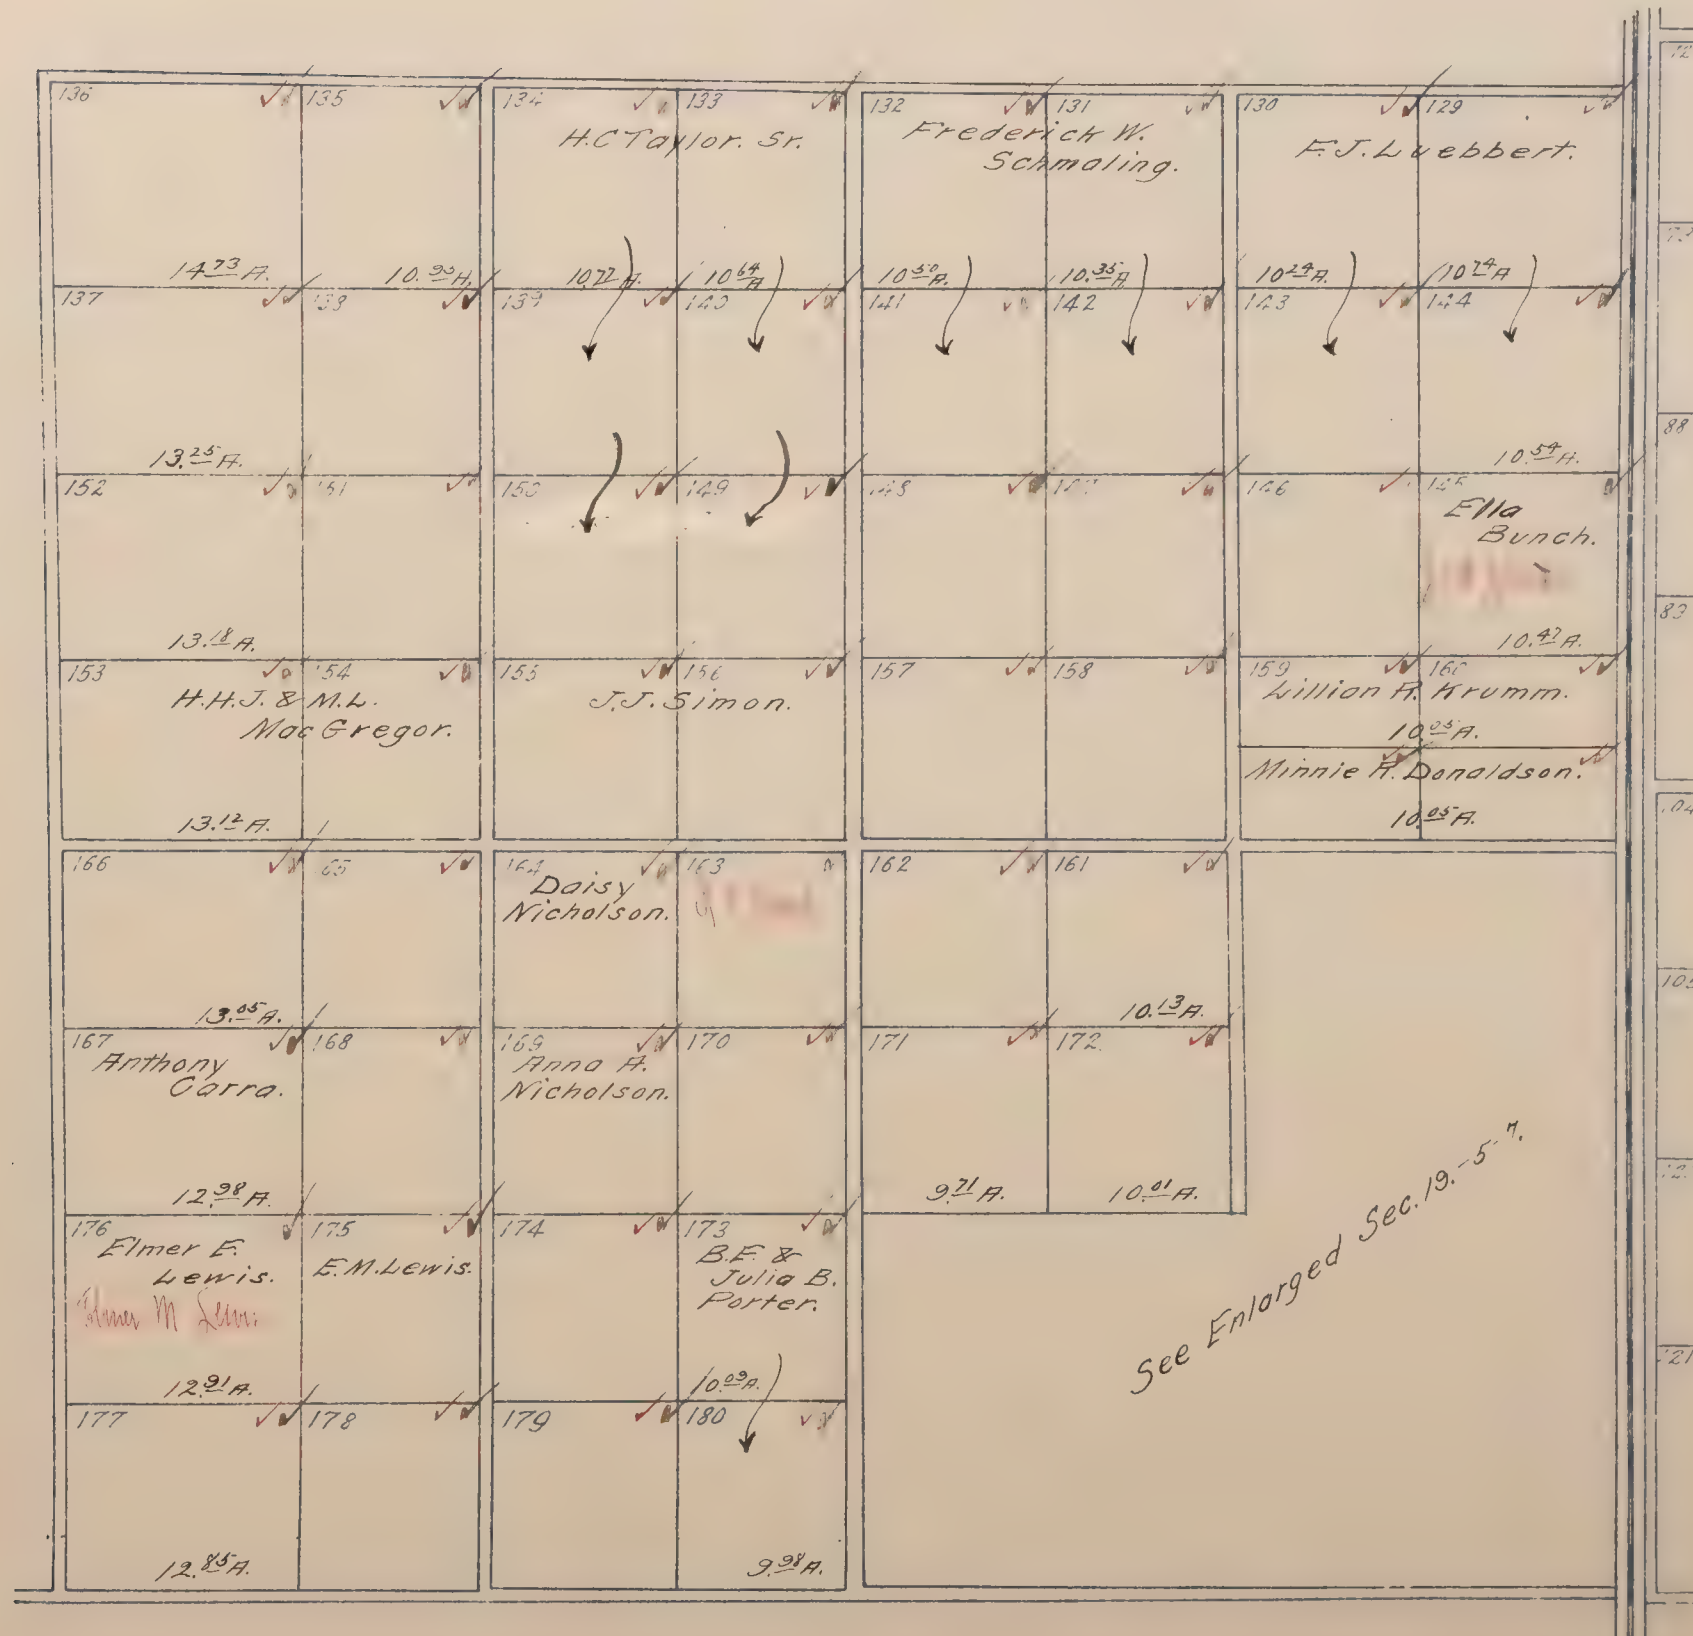 136 135 134 133 132 131 130 129
H.C Taylor. Sr.
Frederick W.
Schmaling.
F.J. Luebbert.
14.73 A. 10.77 A. 10.64 A 10.50 A. 10.35 A 10.24 A. 10.74 A
137 138 139 140 141 142 143 144
13.25 A. 10.54 A.
152 151 150 149 148 147 146 145
Ella
Bunch.
13.18 A. 10.47 A.
153 154 155 156 157 158 159 160
H.H.J. & M.L.
MacGregor.
J.J. Simon.
Lillian R. Krumm.
10.05 A.
Minnie R. Donaldson.
13.12 A. 10.05 A.
166 165 164 163 162 161
Daisy
Nicholson.
13.05 A. 10.13 A.
167 168 169 170 171 172
Anthony
Carra.
Anna A.
Nicholson.
12.98 A. 9.71 A. 10.01 A.
176 175 174 173
Elmer E.
Lewis.
E.M. Lewis.
B.E. &
Julia B.
Porter.
12.91 A. 10.09 A.
177 178 179 180
12.85 A. 9.98 A.
See Enlarged Sec. 19.-5-7.
88
83